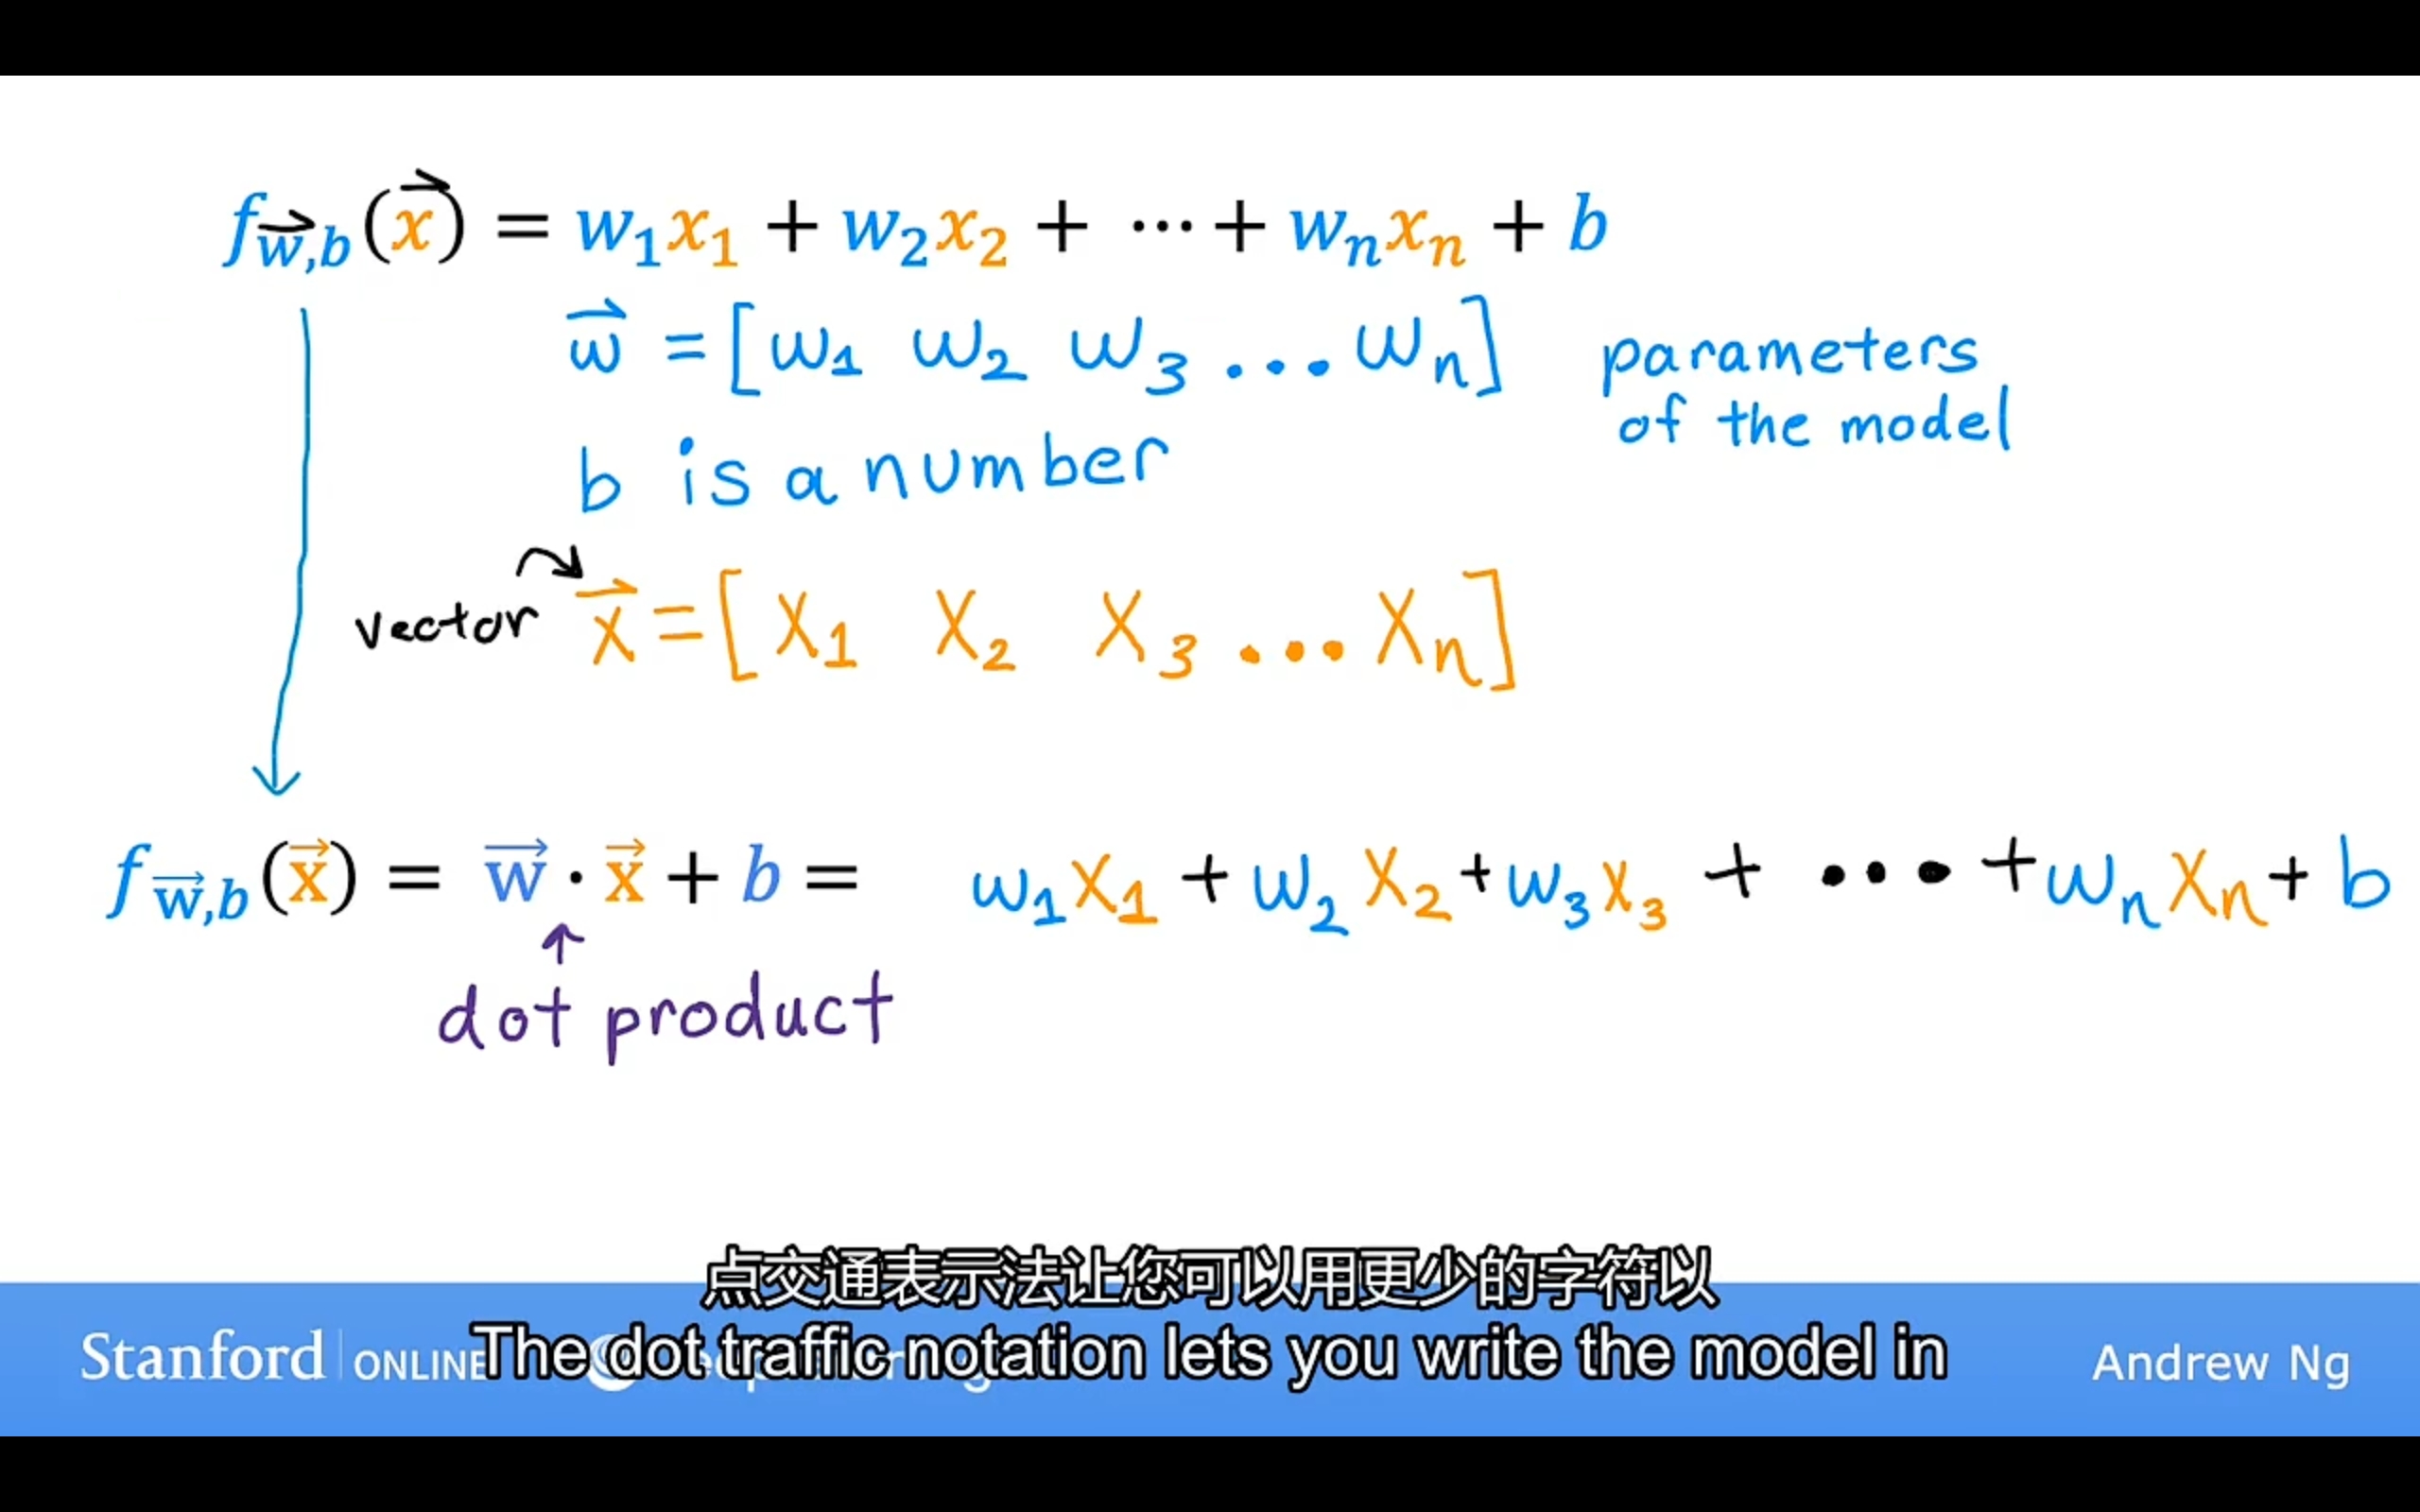 f_{\vec{w},b}(\vec{x}) = w_1x_1 + w_2x_2 + ⋯ + w_nx_n + b
\vec{w} = [w_1 w_2 w_3 ... w_n] parameters
of the model
b is a number
vector \vec{x} = [x_1 x_2 x_3 ... x_n]
f_{\vec{w},b}(\vec{x}) = \vec{w} · \vec{x} + b = w_1x_1 + w_2x_2 + w_3x_3 + ... + w_nx_n + b
dot product
点交通表示法让您可以用更少的字符以
The dot traffic notation lets you write the model in
Stanford ONLINE
Andrew Ng